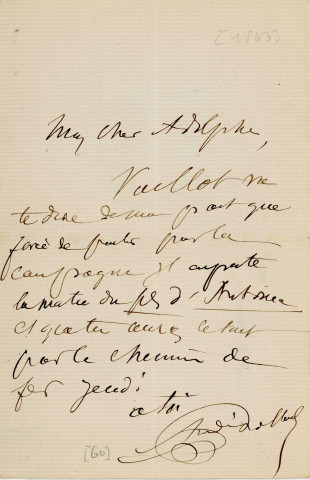 [1863]
Mon cher Adolphe,
Vuillot va
te dire de ma part que
forcé de partir pour la
campagne il apporte
la moitié du fils d'Antonia
et que tu auras le tout
par le chemin de
fer jeudi
à toi
[60]